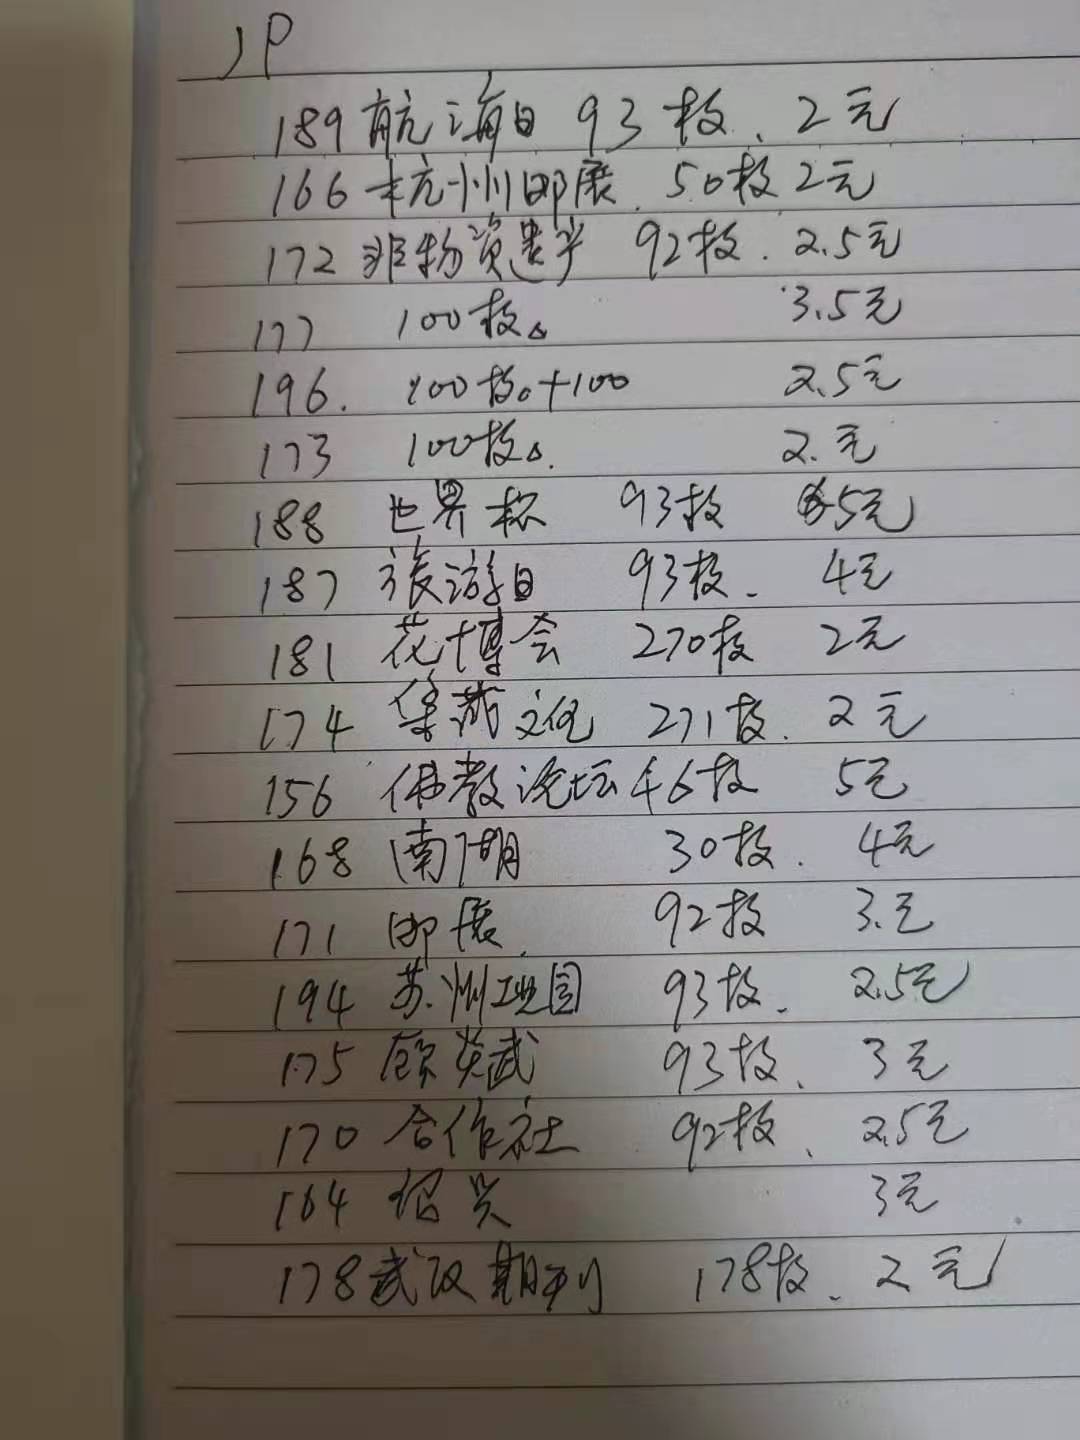 JP
189 航海日 93枚、2元
166 杭州邮展. 50枚 2元
172 非物资遗产 92枚. 2.5元
177 100枚。 3.5元
196. 100枚。+100 2.5元
173 100枚。 2.元
188 世界杯 93枚 5元
187 旅游日 93枚. 4元
181 花博会 270枚 2元
174 集藏文化 271枚. 2元
156 佛教论坛 46枚 5元
168 30枚. 4元
171 邮展. 92枚 3.元
194 苏州工业园 93枚. 2.5元
175 顾炎武 93枚、 3元
170 合作社 92枚、 2.5元
164 绍兴 3元
178 武汉期刊 178枚、2元